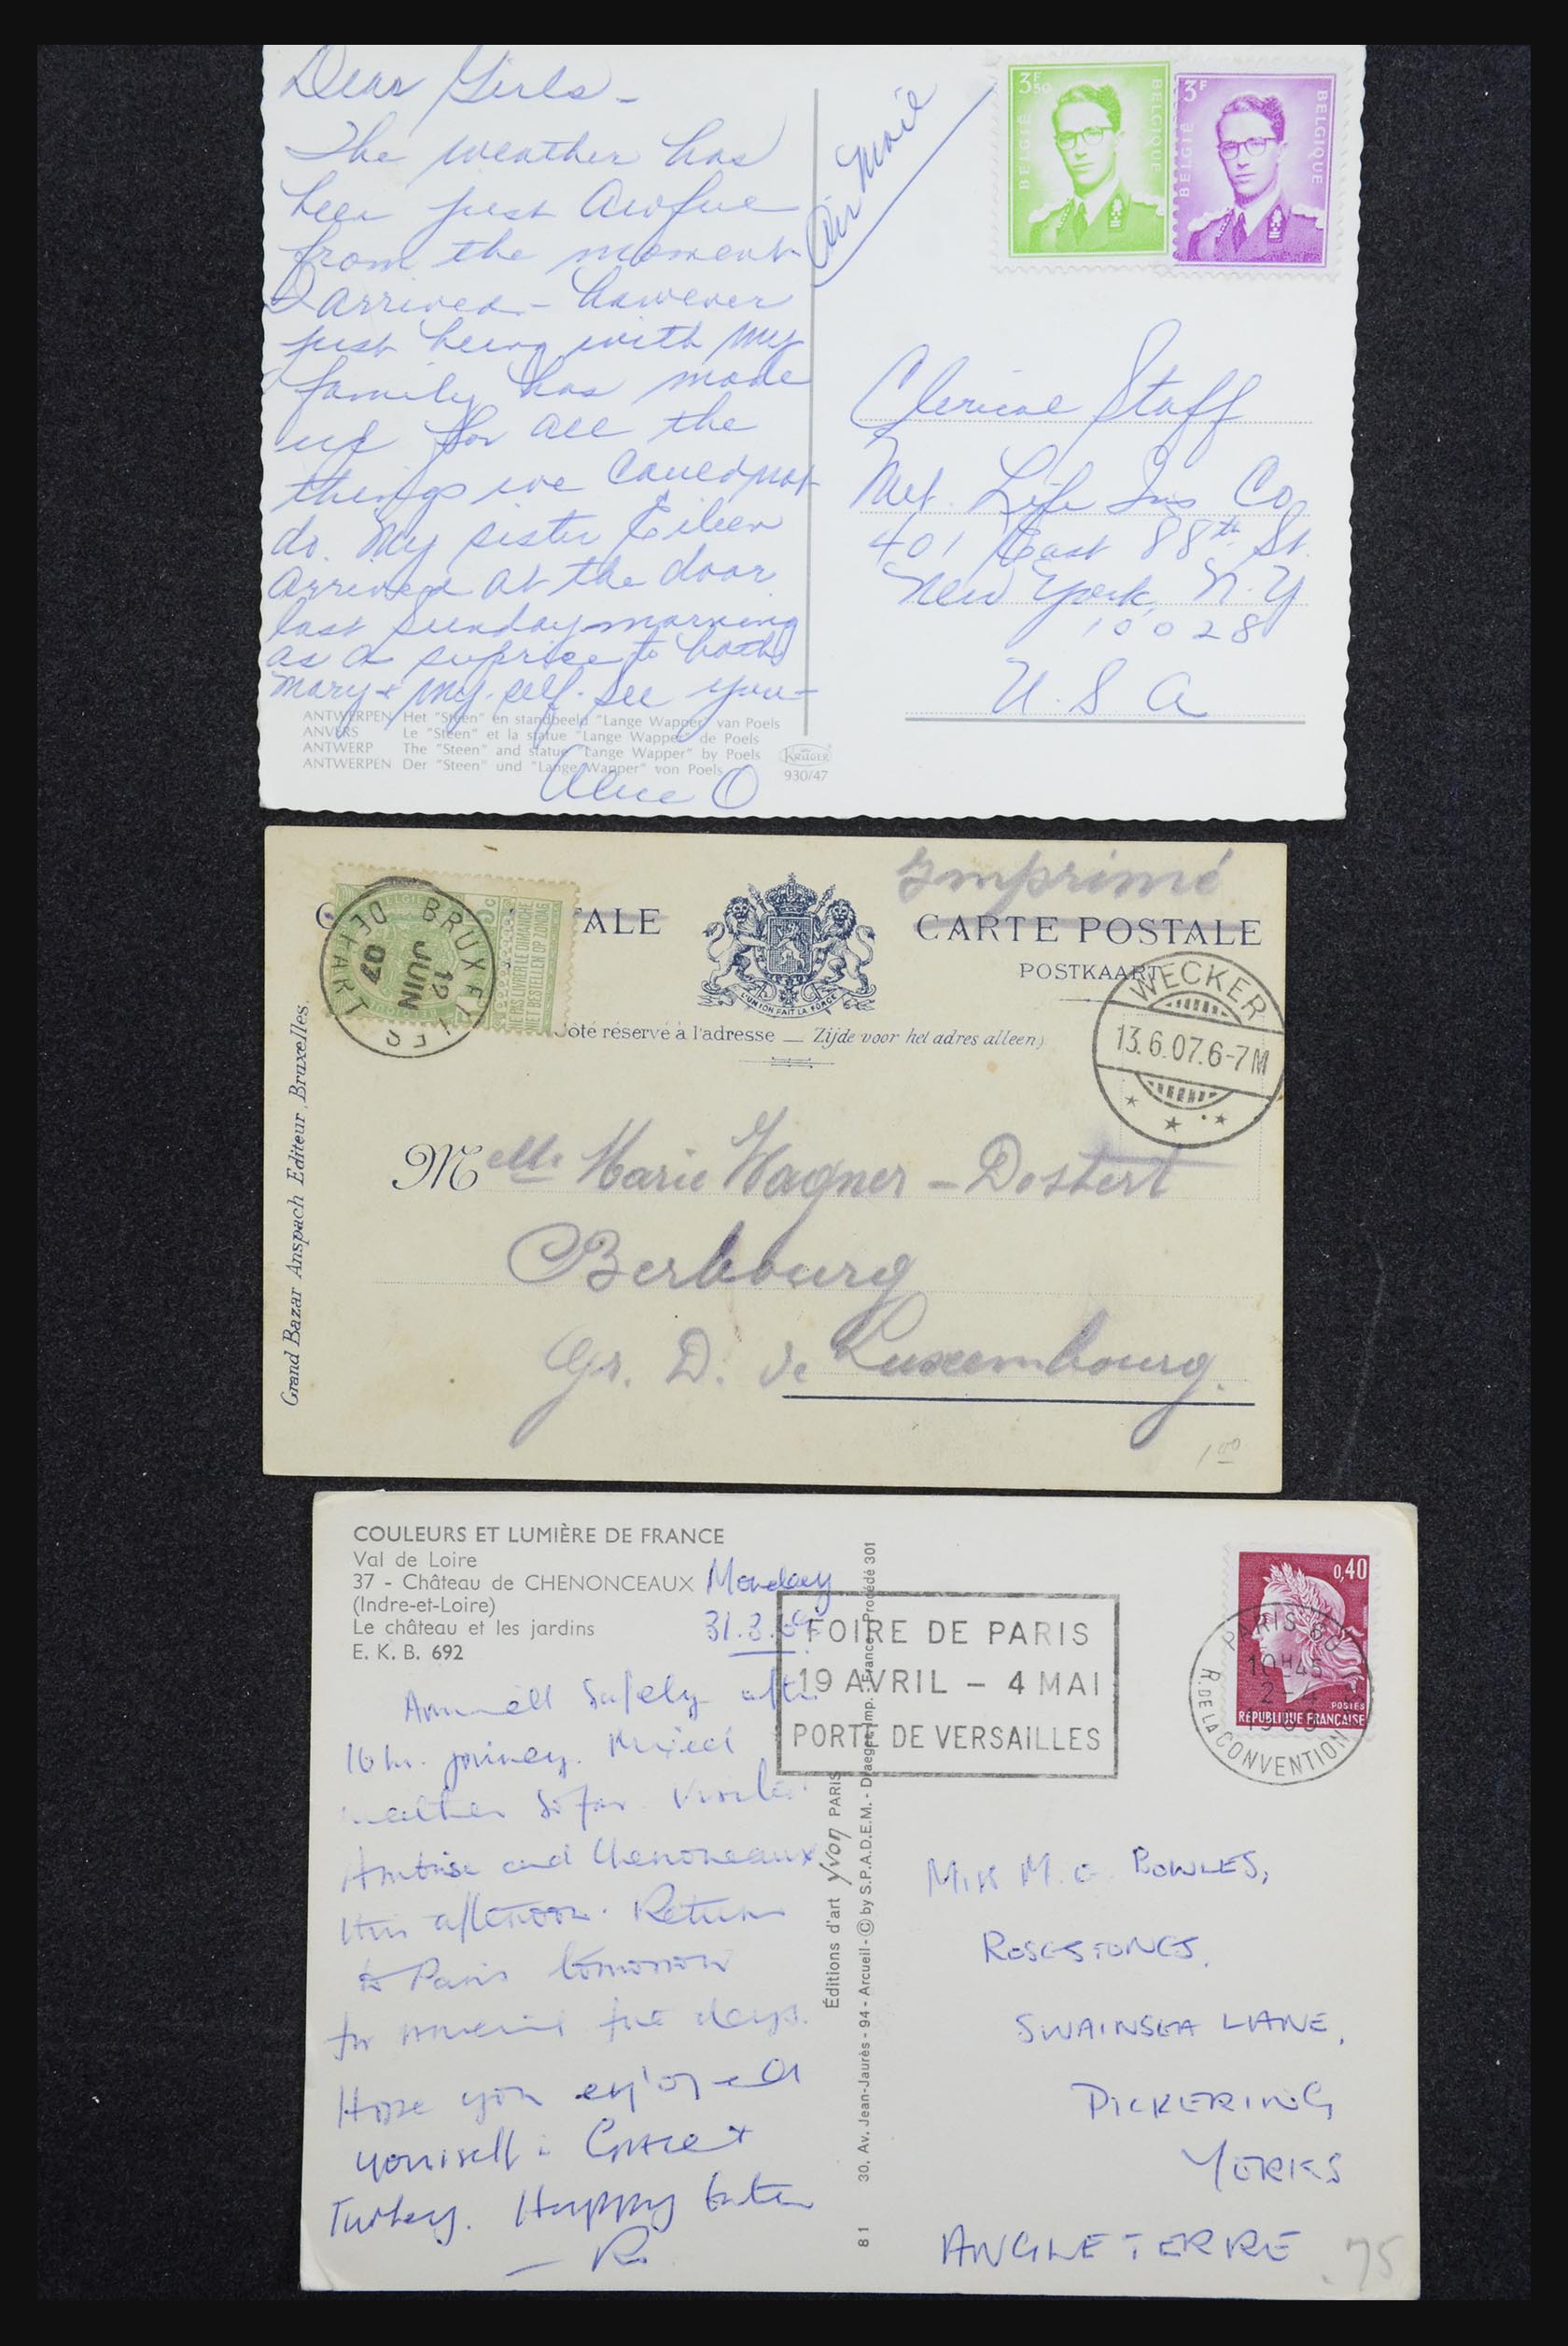 Dear Girls -
The weather has
been just awful
from the moment
I arrived - however
just being with my
family has made
up for all the
things we could not
do. My sister Eileen
arrived at the door
last Sunday morning
as a suprise to both
Mary & my-self. See you -
Alice O
ANTWERPEN Het "Steen" en standbeeld "Lange Wapper" van Poels
ANVERS Le "Steen" et la statue "Lange Wapper" de Poels
ANTWERP The "Steen" and statue "Lange Wapper" by Poels
ANTWERPEN Der "Steen" und "Lange Wapper" von Poels
KRUGER
930/47
Air Mail
3F50
BELGIË
BELGIQUE
3F
BELGIË
BELGIQUE
Clerical Staff
Met. Life Ins Co
401 East 88th St.
New York, N.Y
10028
U.S A
Imprimé
ALE
CARTE POSTALE
POSTKAART
L'UNION FAIT LA FORCE
BRUXELLES
12
JUIN
07
DEPART
NE PAS LIVRER LE DIMANCHE
NIET BESTELLEN OP ZONDAG
Côté réservé à l'adresse — Zijde voor het adres alleen)
WECKER
13.6.07.6-7M
Grand Bazar Anspach Editeur, Bruxelles.
Melle Marie Wagner - Dostert
Berbourg
Gr. D. de Luxembourg.
1 00
COULEURS ET LUMIÈRE DE FRANCE
Val de Loire
37 - Château de CHENONCEAUX
(Indre-et-Loire)
Le château et les jardins
E. K. B. 692
Monday
31.3.69
Arrived safely after
16 hr. journey. Mixed
weather so far. Visited
Amboise and Chenonceaux
this afternoon. Return
to Paris tomorrow
for remaining five days.
Hope you enjoyed
yourself in Greece &
Turkey. Happy Easter
— R.
Éditions d'art yvon PARIS
81 30, Av. Jean-Jaurès - 94 - Arcueil - © by S.P.A.D.E.M. - Draeger Imp. - France. Procédé 301
FOIRE DE PARIS
19 AVRIL - 4 MAI
PORTE DE VERSAILLES
0,40
POSTES
RÉPUBLIQUE FRANÇAISE
PARIS 60
10H45
2 - 4
R. DE LA CONVENTION
MISS M. G. BOWLES,
ROSESTONES,
SWAINSEA LANE,
PICKERING
YORKS
ANGLETERRE
.75